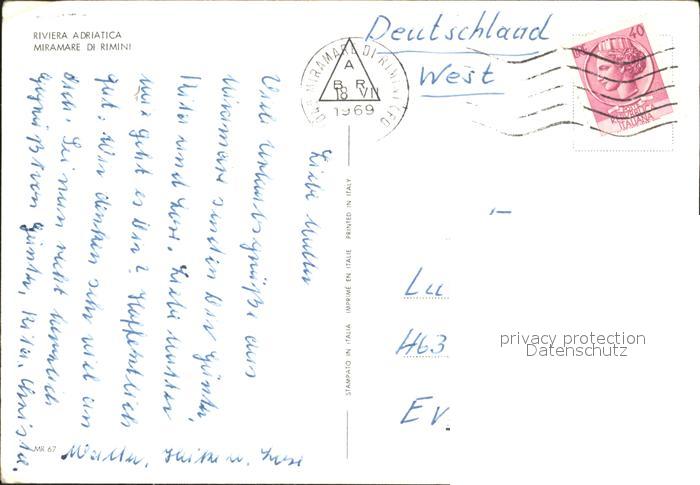 RIVIERA ADRIATICA
MIRAMARE DI RIMINI
Liebe Mutter
Viele Urlaubsgrüße aus
Miramare senden Dir Günter,
Rita und Lore. Liebe Mutter
wie geht es Dir? Hoffentlich
gut. Wir denken sehr viel an
Dich. Sei nun recht herzlich
gegrüßt von Günter, Rita, Christa,
Walter, Lore
MR 67
STAMPATO IN ITALIA IMPRIMÉ EN ITALIE PRINTED IN ITALY
MIRAMARE DI RIMINI (FO)
A
B R
18 VII
1969
Deutschland
West
40
REPUBBLICA
ITALIANA
Lu
463
Ev.
privacy protection
Datenschutz